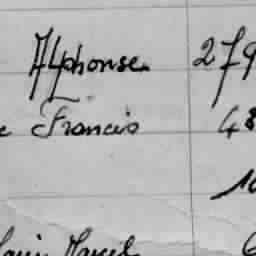 Alphonse 279
e Francis 48
10
Marcel